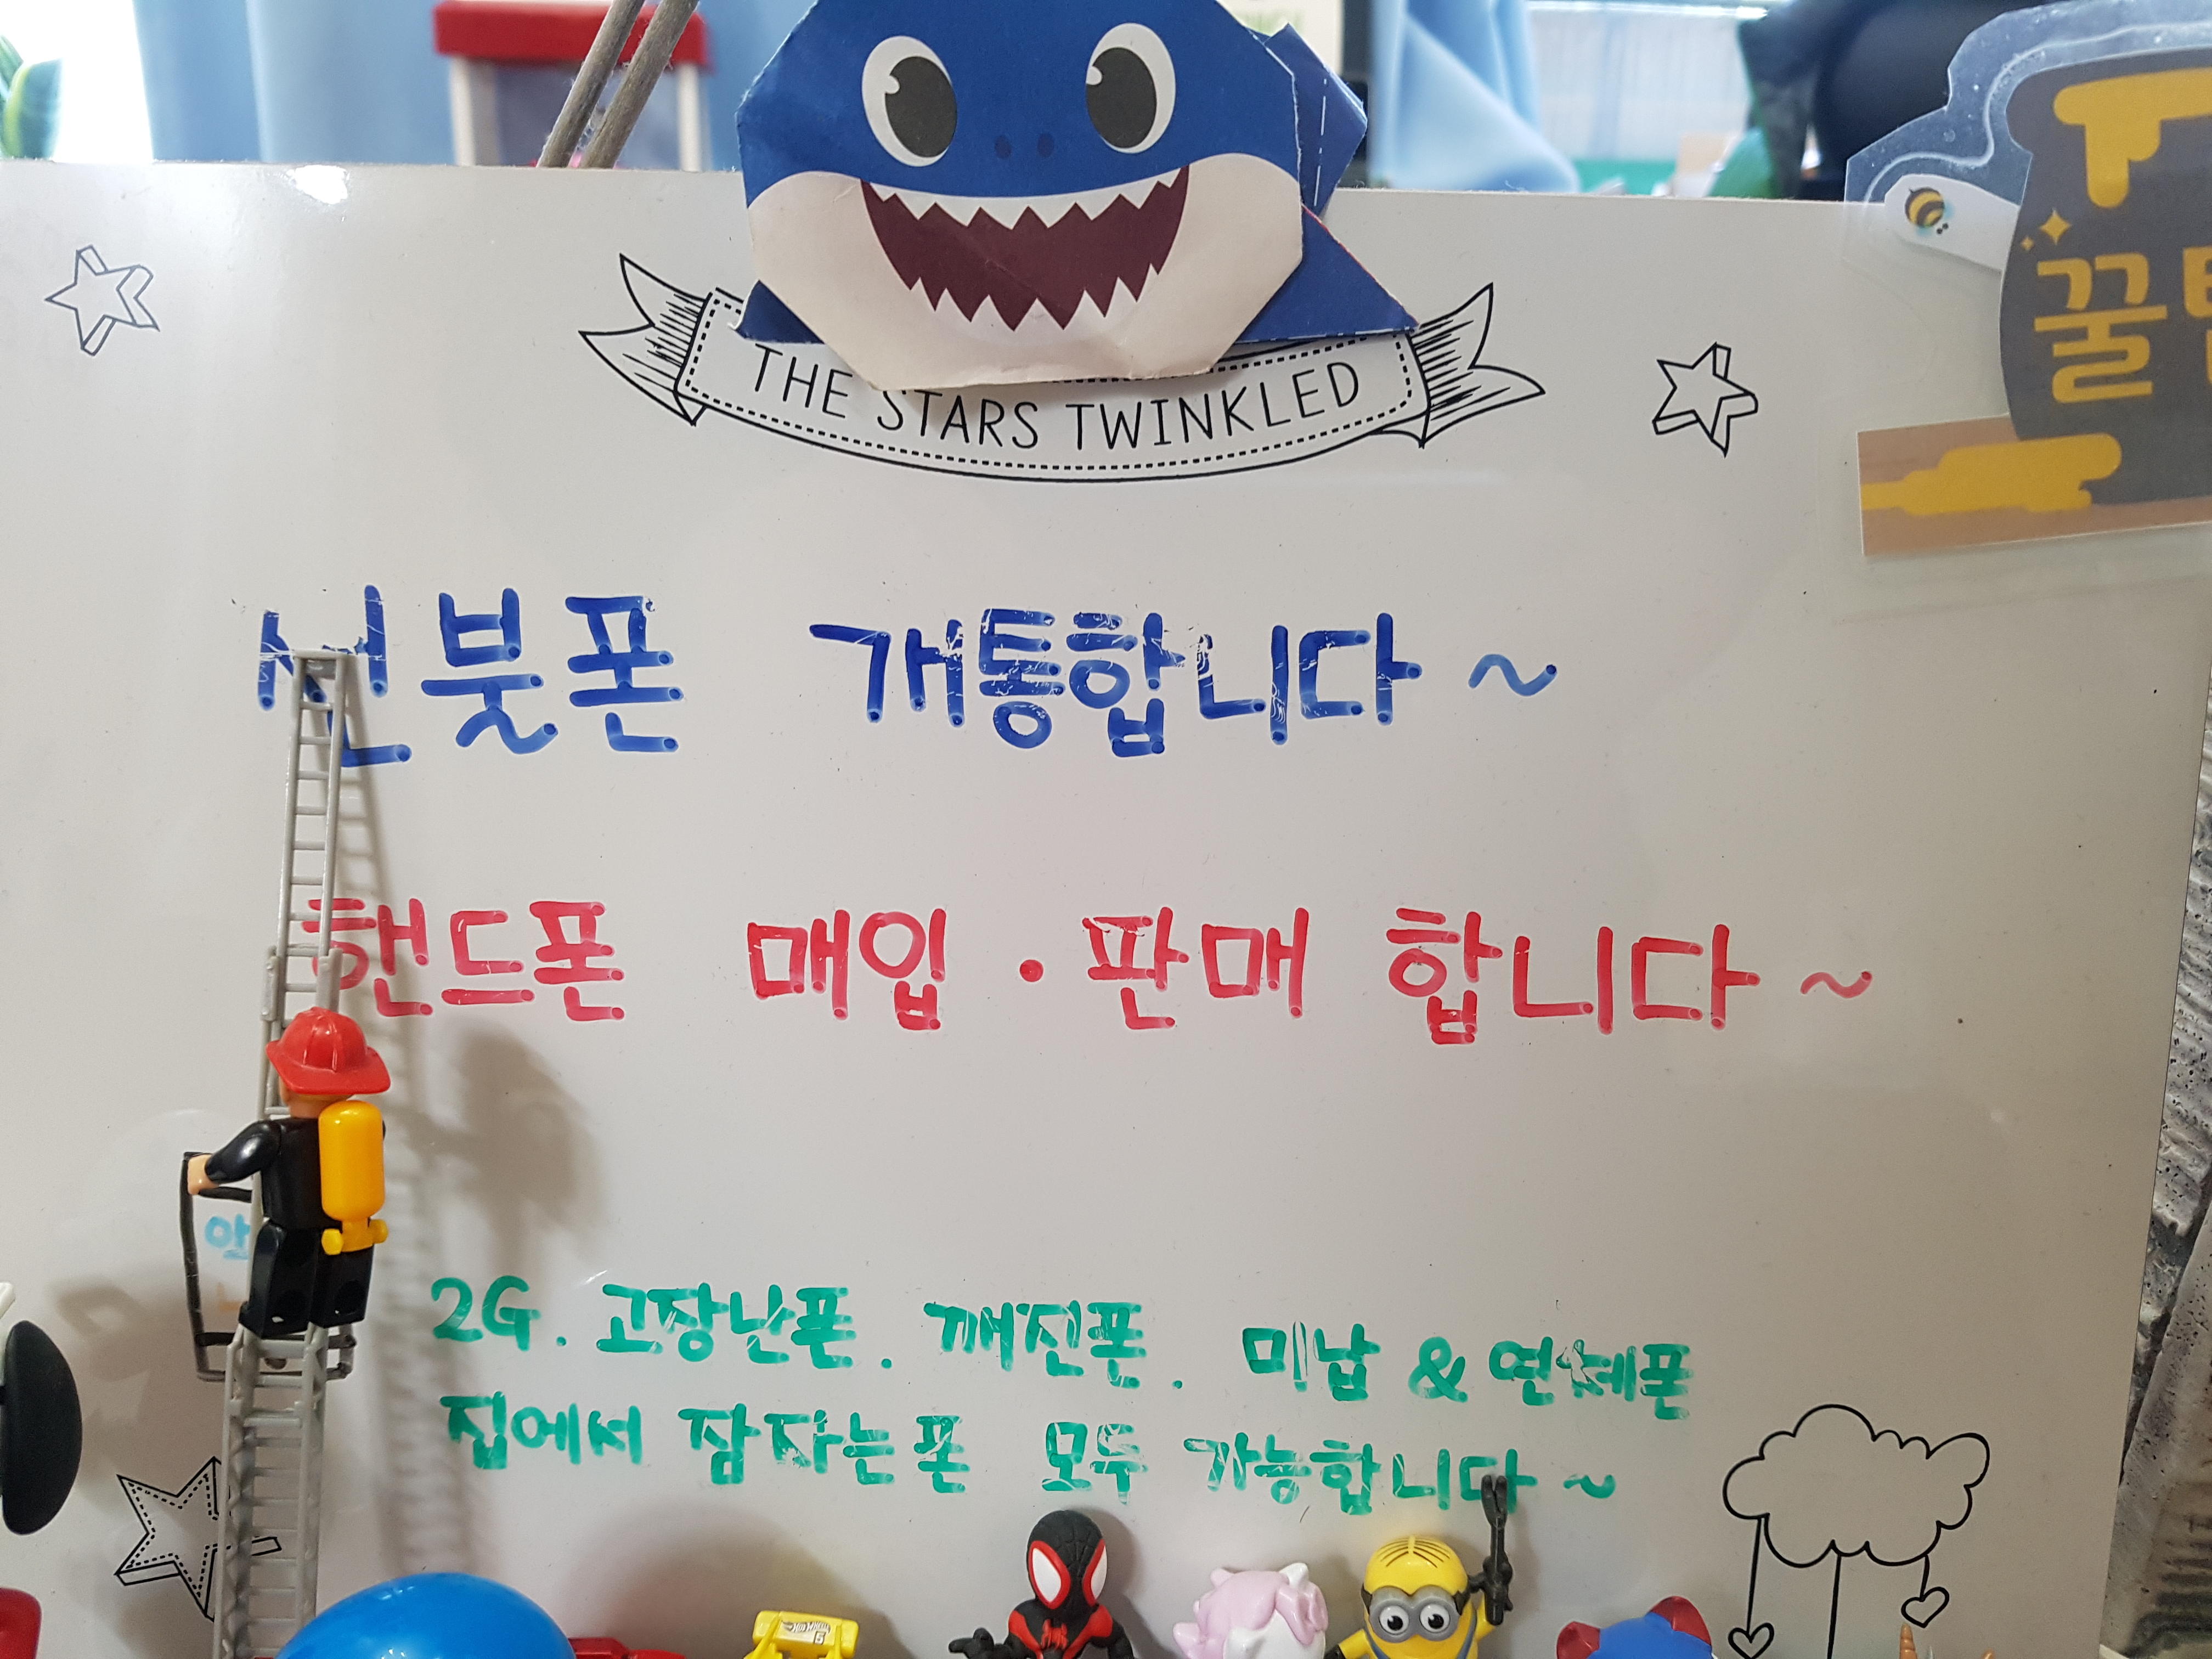 THE STARS TWINKLED
꿀
선불폰 개통합니다 ~
핸드폰 매입 · 판매 합니다 ~
안
2G. 고장난폰. 깨진폰. 미납 & 연체폰
집에서 잠자는폰 모두 가능합니다 ~